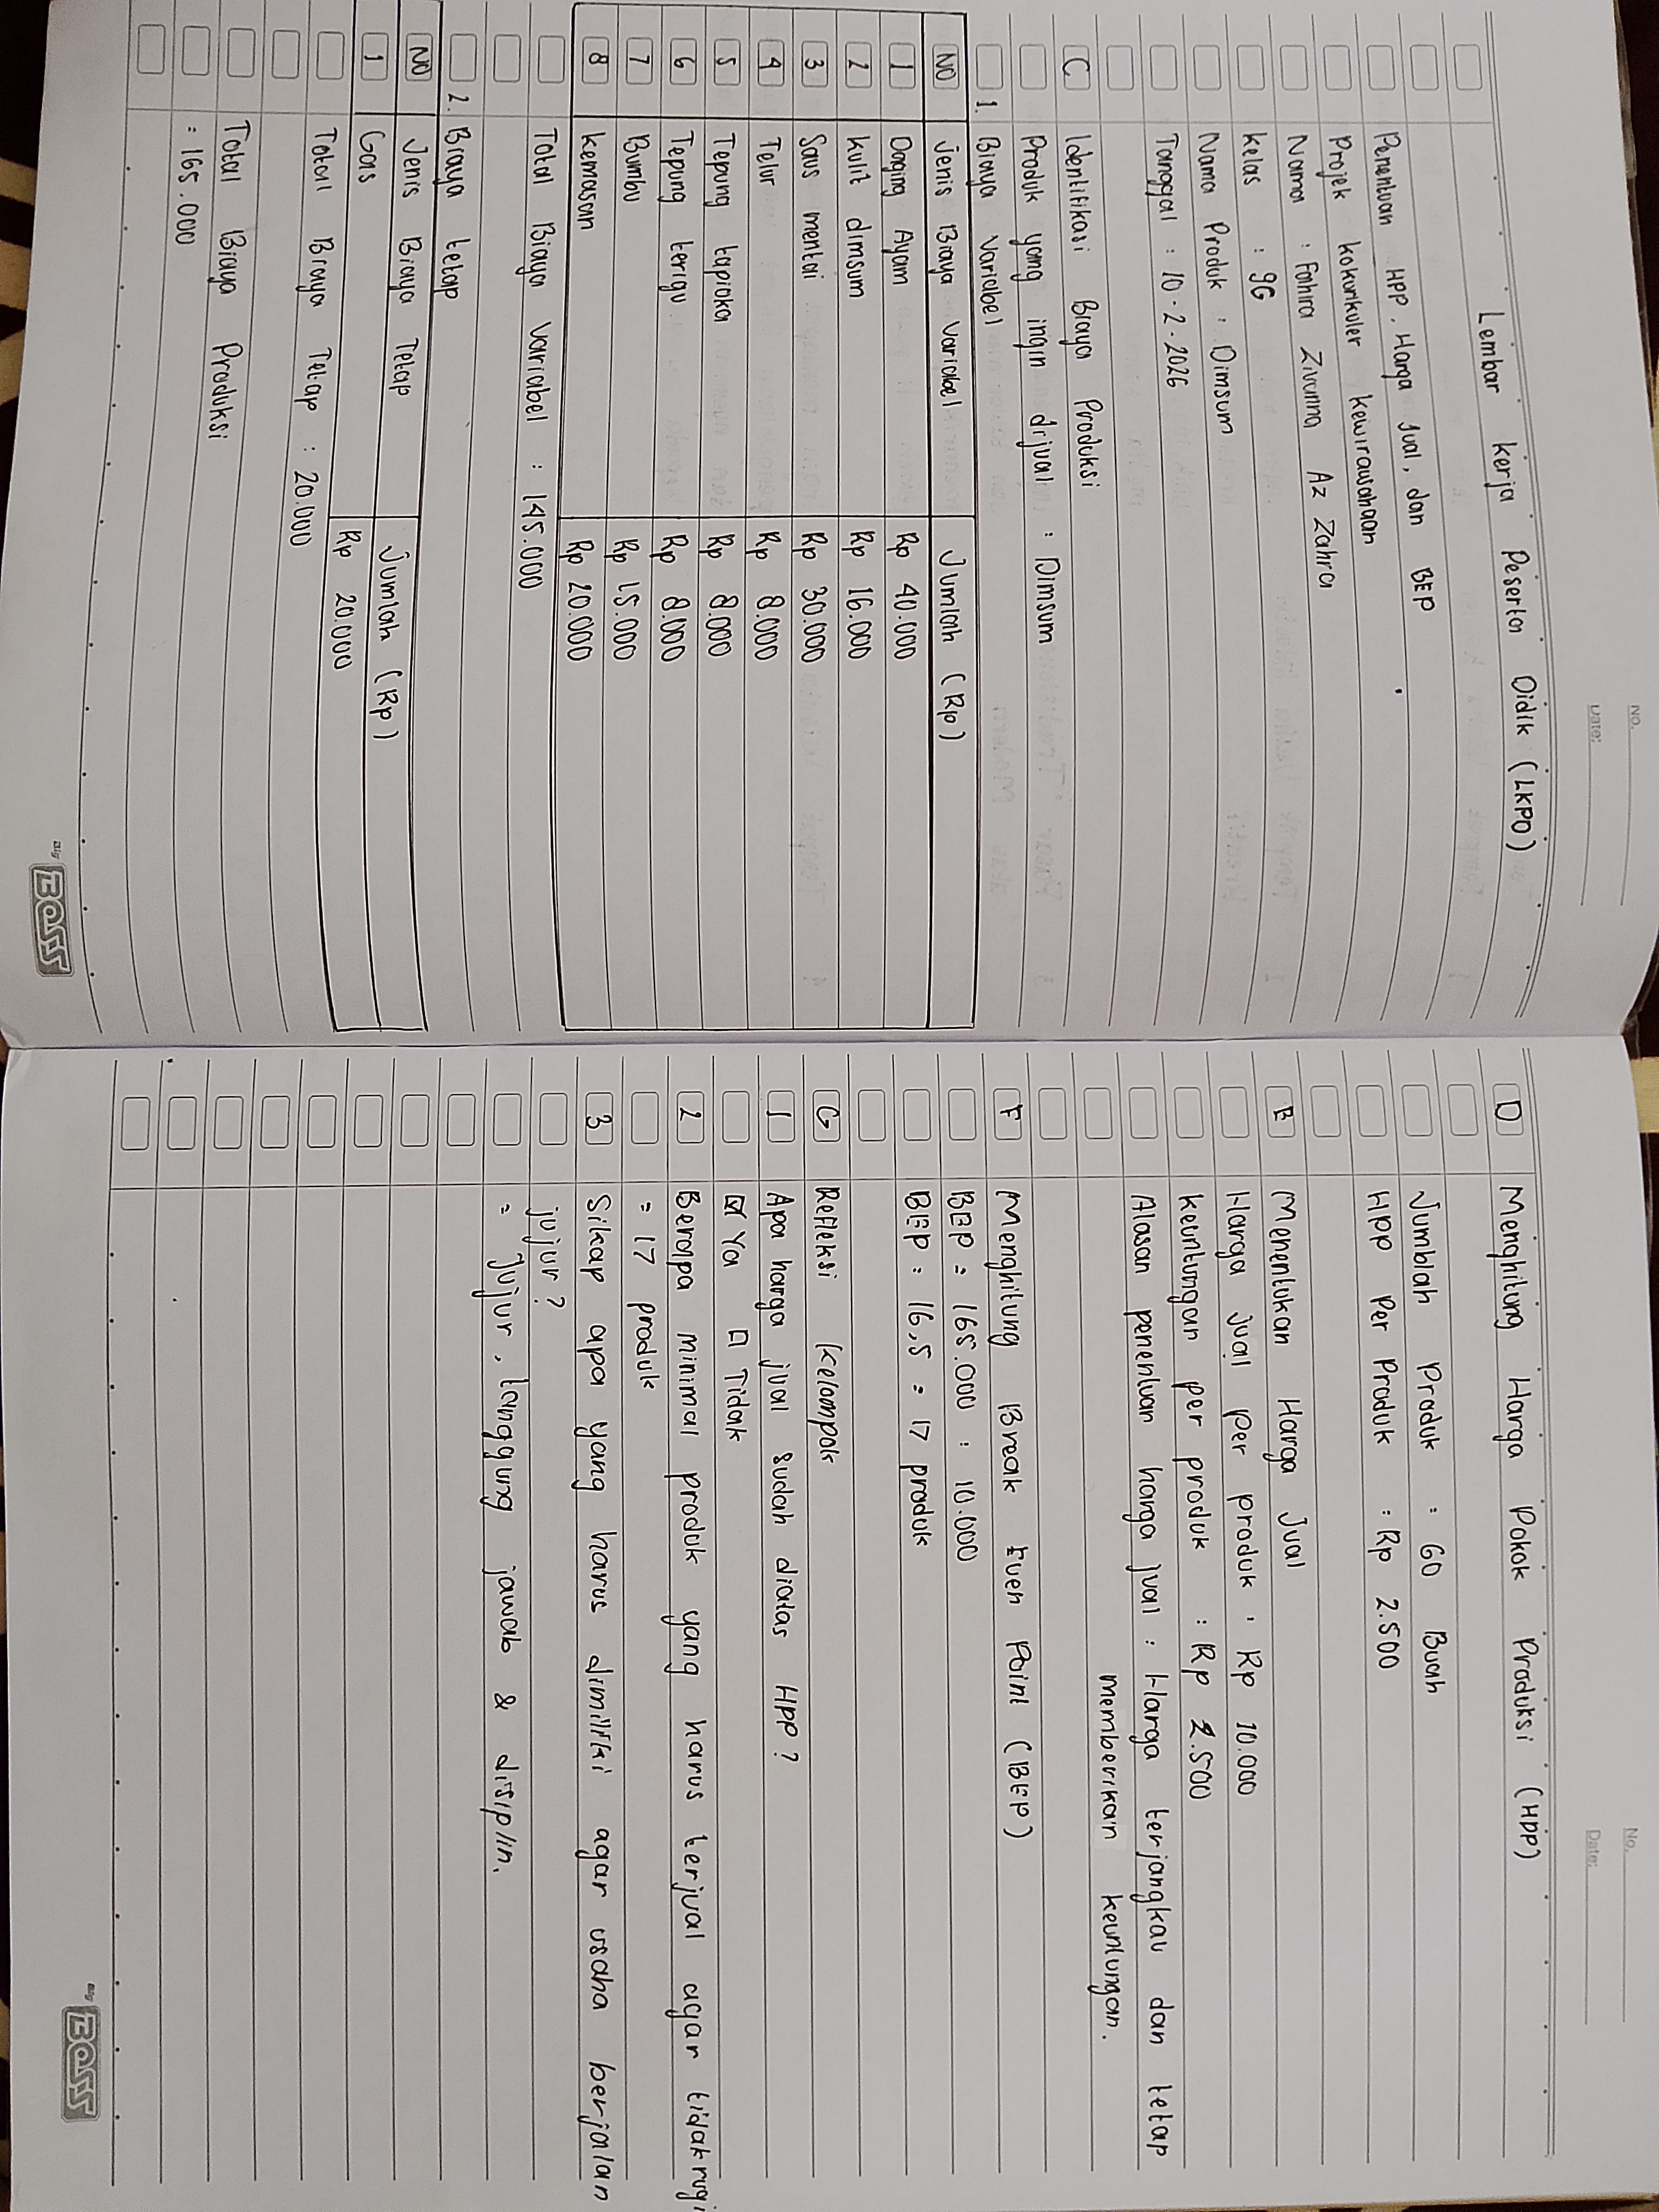 No.
Date:
Lembar kerja Peserta Didik (LKPD)
Penentuan HPP, Harga Jual, dan BEP
Projek kokurikuler kewirausahaan
Nama : Fahira Zivanna Az Zahra
Kelas : 9G
Nama Produk : Dimsum
Tanggal : 10-2-2026
C Identifikasi Biaya Produksi
Produk yang ingin dijual : Dimsum
1. Biaya Variabel
NO Jenis Biaya Variabel Jumlah (Rp)
1 Daging Ayam Rp 40.000
2 Kulit dimsum Rp 16.000
3 Saus mentai Rp 30.000
4 Telur Rp 8.000
5 Tepung tapioka Rp 8.000
6 Tepung terigu Rp 8.000
7 Bumbu Rp 15.000
8 Kemasan Rp 20.000
Total Biaya Variabel : 145.000
2. Biaya tetap
NO Jenis Biaya Tetap Jumlah (Rp)
1 Gas Rp 20.000
Total Biaya Tetap : 20.000
Total Biaya Produksi
= 165.000
Big Boss
No.
Date:
D Menghitung Harga Pokok Produksi (HPP)
Jumblah Produk : 60 Buah
HPP Per Produk : Rp 2.500
E Menentukan Harga Jual
Harga jual per produk : Rp 10.000
Keuntungan per produk : Rp 2.500
Alasan penentuan harga jual : Harga terjangkau dan tetap
memberikan keuntungan.
F Menghitung Break Even Point (BEP)
BEP = 165.000 : 10.000
BEP = 16,5 = 17 produk
G Refleksi Kelompok
1 Apa harga jual sudah diatas HPP?
☑ Ya ☐ Tidak
2 Berapa minimal produk yang harus terjual agar tidak rugi
= 17 produk
3 Sikap apa yang harus dimiliki agar usaha berjalan
jujur?
= Jujur, tanggung jawab & disiplin.
Big Boss